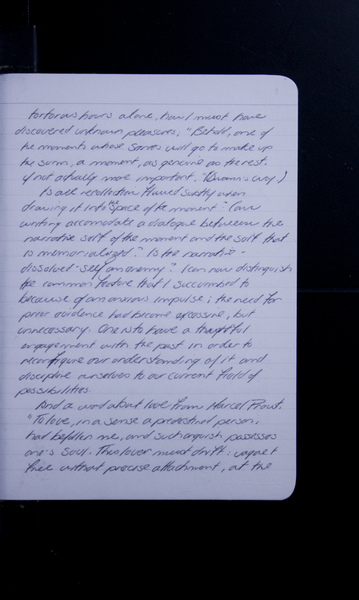 torturous hours alone, how I must have
discovered unknown pleasures. "Behold, one of
the moments whose scores will go to make up
the sum, a moment, as genuine as the rest,
if not actually more important." (Swann's Way.)
Is all recollection flawed solely when
drawing it into the "space of the moment"? Can
writing accomodate a dialogue between the
narrative self of the moment and the self that
is memorialized? Is the narrative -
dissolved - self an enemy? I can now distinguish
the common feature that I succumbed to
because of an onerous impulse; the need for
prior evidence had become excessive, but
unnecessary. One is to have a thoughtful
engagement with the past in order to
reconfigure our understanding of it and
discipline ourselves to our current field of
possibilities.
And a word about love from Marcel Proust.
"To love, in a sense a predestined person,
had befallen me, and such anguish possesses
one's soul. This lover must drift: vague &
free without precise attachment, at the